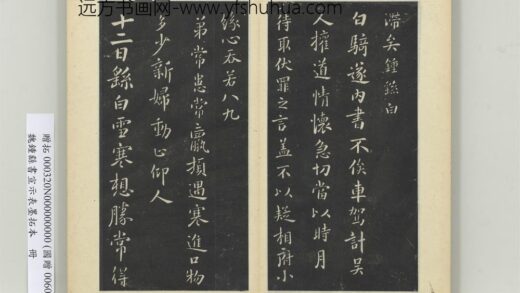 远方书画网-www.yfshuhua.com
滯矣鍾繇白
白騎遂內書不俟車駕計吳
人權道情懷急切當以時月
待取伏罪之言蓋不以疑相府小
緣心吞若八九
弟常患常羸損遇寒進口物
多少新婦動止仰人
十二日繇白雪寒想勝常得
贈拓 000320N000000000 (國贈 0060
魏鍾繇書宣示表墨拓本 冊